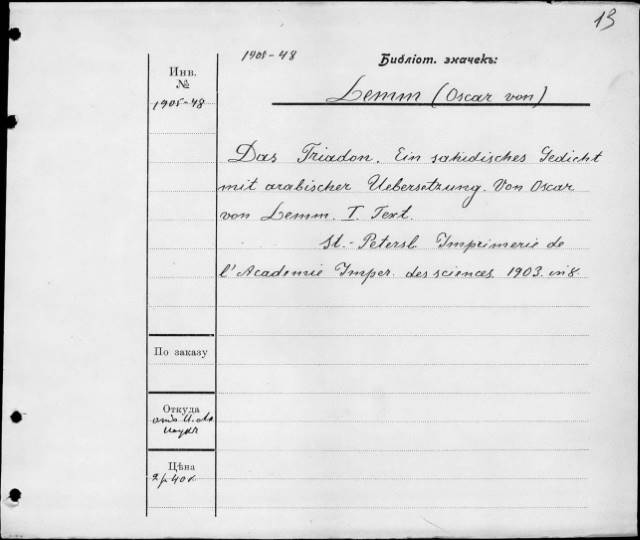 13
1905-48
Библіот. значекъ:
Инв.
№
1905-48
Lemm (Oscar von)
Das Triadon. Ein sahidisches Gedicht
mit arabischer Uebersetzung. Von Oscar
von Lemm. I. Text.
St.-Petersb. Imprimerie de
l'Academie Imper. des sciences. 1903. in 8.
По заказу
Откуда
Наукъ
Цѣна
2 р 40 к